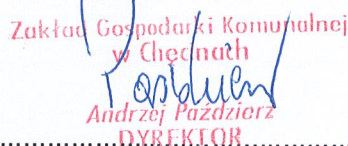 Zakład Gospodarki Komunalnej
w Chęcinach
Andrzej Paździerz
DYREKTOR